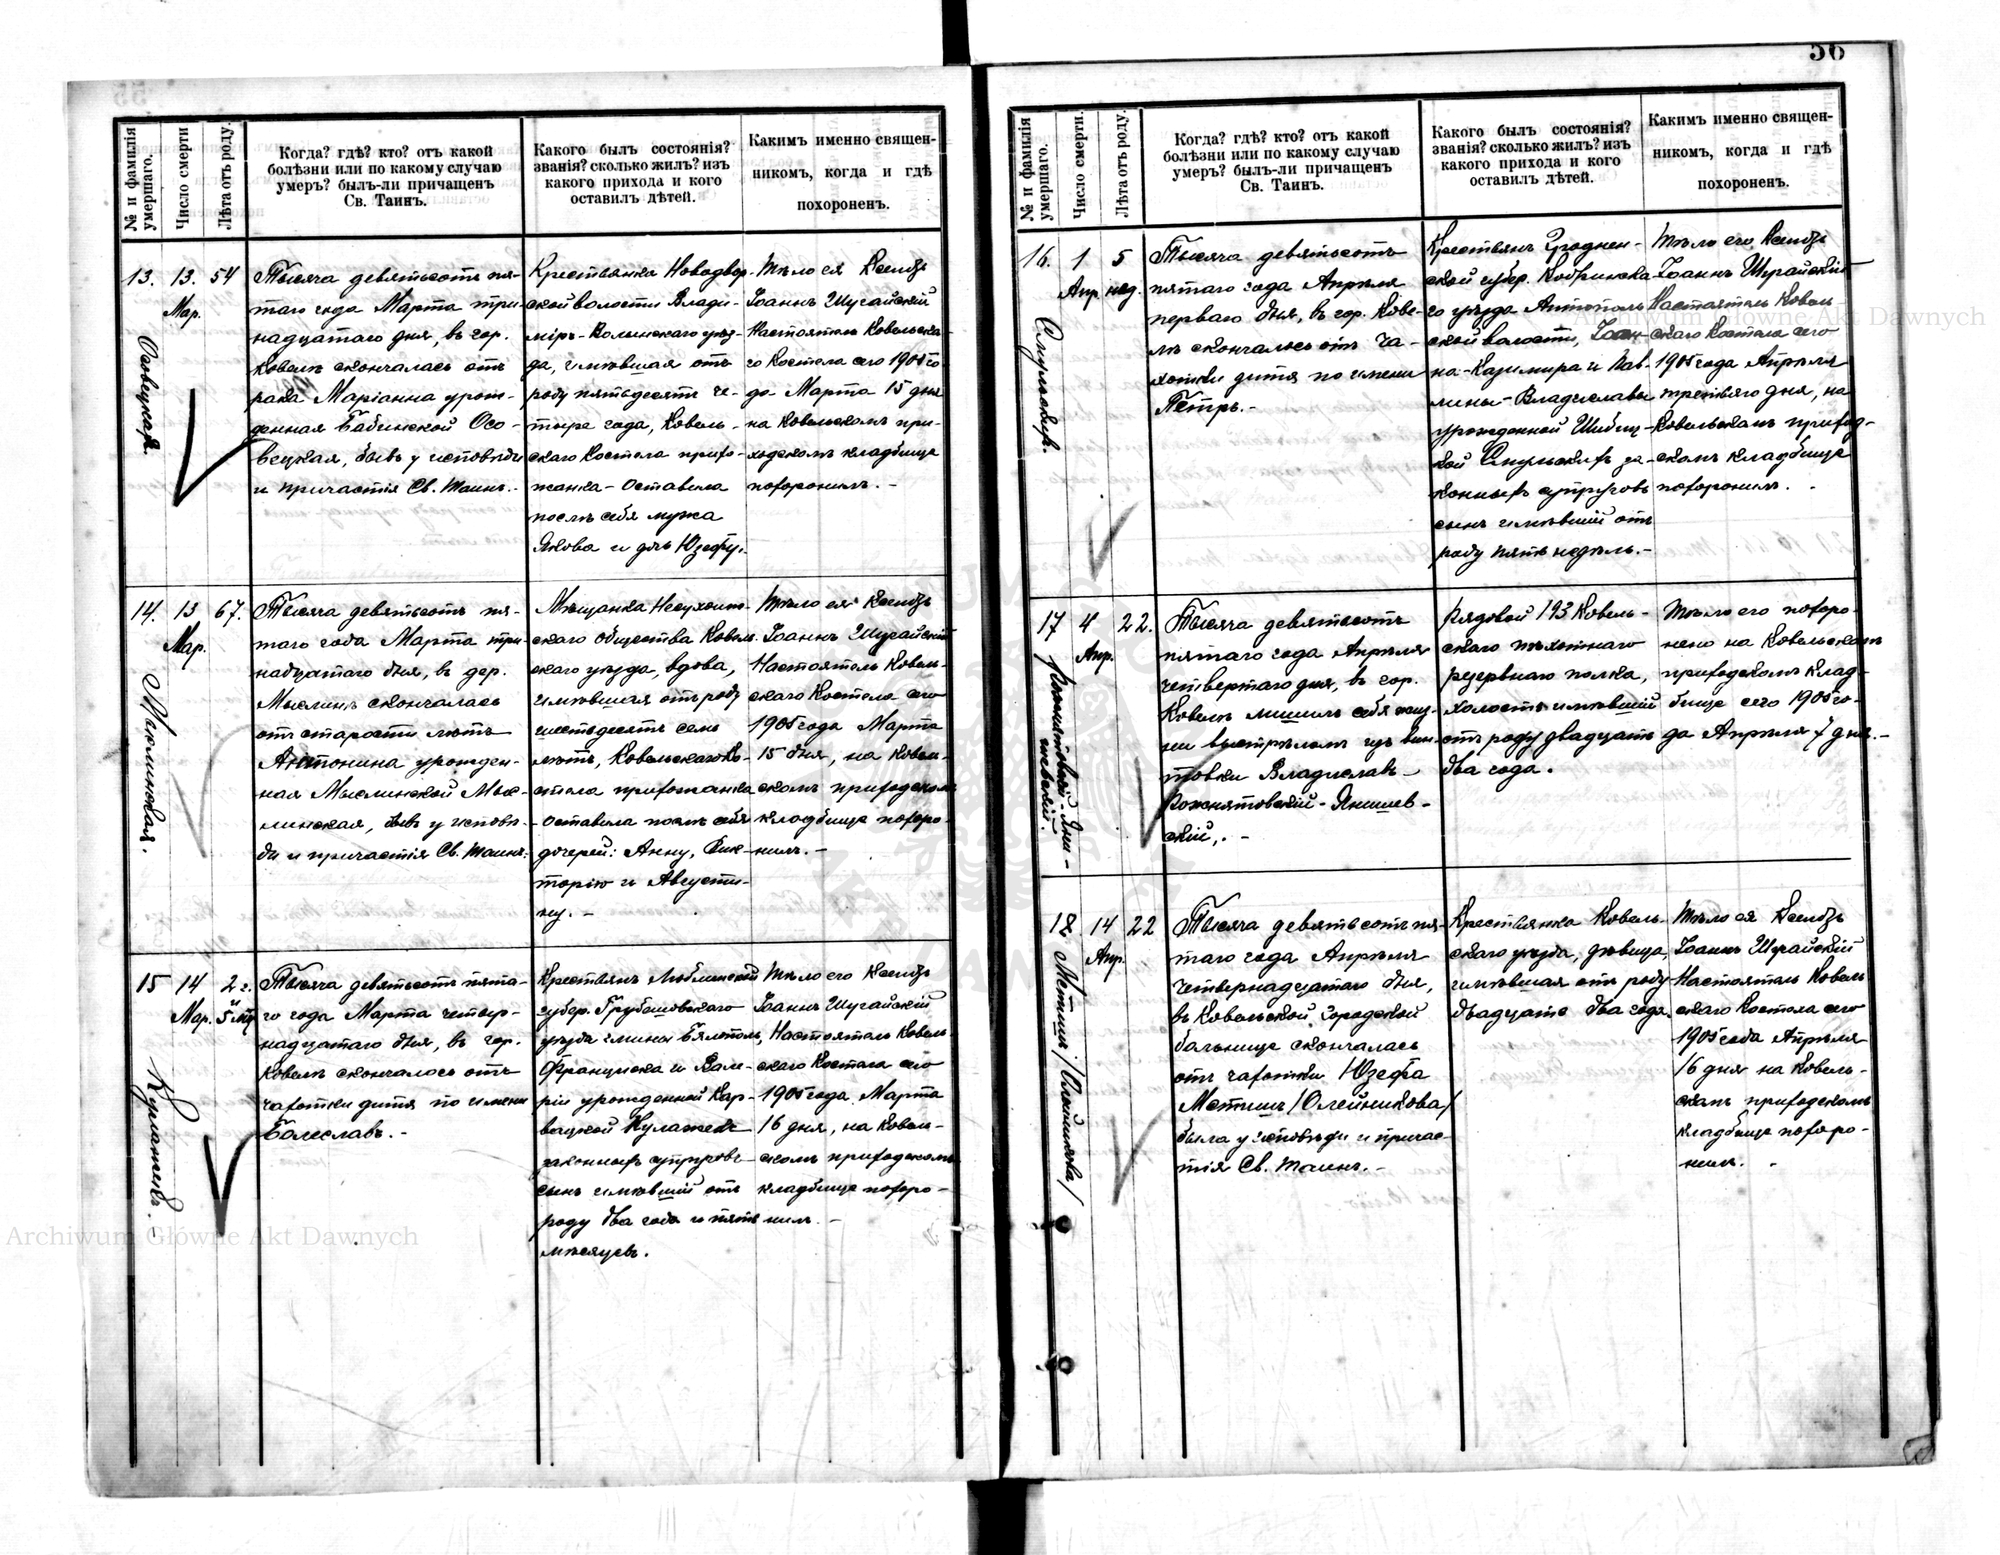 56
№ и фамилія умершаго.
Число смерти
Лѣта отъ роду.
Когда? гдѣ? кто? отъ какой
болѣзни или по какому случаю
умеръ? былъ-ли причащенъ
Св. Таинъ.
Какого былъ состоянія?
званія? сколько жилъ? изъ
какого прихода и кого
оставилъ дѣтей.
Каким именно священ-
никомъ, когда и гдѣ
похороненъ.
13.
13.
Мар.
54
Осовецкая.
Тысяча девятьсотъ пя-
таго года Марта три-
надцатаго дня, въ гор.
Ковелѣ скончалась отъ
рака Маріанна урож-
денная Бабинской Осо-
вецкая, бывъ у исповѣди
и причастія Св. Таинъ.-
Крестьянка Новодвор-
ской волости Влади-
міръ-Волынскаго уѣз-
да, имѣвшая отъ
роду пятьдесятъ че-
тыре года, Ковель-
скаго Костела прихо-
жанка - Оставила
послѣ себя мужа
Якова и дочь Юзефу.
Тѣло ея Ксендзъ
Іоаннъ Шугайскій
Настоятель Ковельска-
го Костела сего 1905 го-
да Марта 15 дня
на Ковельскомъ при-
ходскомъ кладбище
похоронилъ.-
14.
13
Мар.
67.
Мыслинская.
Тысяча девятьсотъ пя-
таго года Марта три-
надцатаго дня, въ дер.
Мыслинѣ скончалась
отъ старости лѣтъ
Антонина урожден-
ная Мыслинской Мыс-
линская, бывъ у исповѣ-
ди и причастія Св. Таинъ.
Мѣщанка Несухоиж-
скаго общества Ковель-
скаго уѣзда, вдова,
имѣвшая отъ роду
шестьдесятъ семь
лѣтъ, Ковельскаго Ко-
стела прихожанка
- Оставила послѣ себя
дочерей: Анну, Вик-
торію и Августи-
ну.-
Тѣло ея Ксендзъ
Іоаннъ Шугайскій
Настоятель Ковель-
скаго Костела сего
1905 года Марта
15 дня, на Ковель-
скомъ приходскомъ
кладбище похоро-
нилъ.-
15
14
Мар.
2 г.
5 мѣ
Кулатекъ.
Тысяча девятьсотъ пята-
го года Марта четыр-
надцатаго дня, въ гор.
Ковелѣ скончалось отъ
чахотки дитя по имени
Болеславъ.-
Крестьянъ Люблинской
губер. Грубешовскаго
уѣзда гмины Бялополь,
Франциска и Вале-
ріи урожденной Кар-
вацкой Кулатекъ
законныхъ супруговъ
сынъ имѣвшій отъ
роду два года и пять
мѣсяцевъ.
Тѣло его Ксендзъ
Іоаннъ Шугайскій
Настоятель Ковель-
скаго Костела сего
1905 года Марта
16 дня, на Ковель-
скомъ приходскомъ
кладбище похоро-
нилъ.-
№ и фамилія умершаго.
Число смерти.
Лѣта отъ роду.
Когда? гдѣ? кто? отъ какой
болѣзни или по какому случаю
умеръ? былъ-ли причащенъ
Св. Таинъ.
Какого былъ состоянія?
званія? сколько жилъ? изъ
какого прихода и кого
оставилъ дѣтей.
Каким именно священ-
никомъ, когда и гдѣ
похороненъ.
16.
1
Апр.
5
нед.
Тысяча девятьсотъ
пятаго года Апрѣля
перваго дня, въ гор. Кове-
лѣ скончалось отъ ча-
хотки дитя по имени
Петръ.-
Крестьянъ Гроднен-
ской губер. Кобринска-
го уѣзда Антополь-
ской волости, Іоан-
на-Казимира и Пав-
лины-Владиславы
урожденной Шибиц-
кой за-
конныхъ супруговъ
сынъ имѣвшій отъ
роду пять недѣль.-
Тѣло его Ксендзъ
Іоаннъ Шугайскій
Настоятель Ковель-
скаго Костела сего
1905 года Апрѣля
третьяго дня, на
Ковельскомъ приход-
скомъ кладбище
похоронилъ.
17
4
Апр.
22.
Рожнятовскій-Яни-
шевскій.
Тысяча девятьсотъ
пятаго года Апрѣля
четвертаго дня, въ гор.
Ковелѣ лишилъ себя жиз-
ни выстрѣломъ изъ вин-
товки Владиславъ
Рожнятовскій-Янишев-
скій.-
Рядовой 193 Ковель-
скаго пѣхотнаго
резервнаго полка,
холостъ имѣвшій
отъ роду двадцать
два года.
Тѣло его похоро-
нено на Ковельскомъ
приходскомъ клад-
бище сего 1905 го-
да Апрѣля 7 дня.-
18
14
Апр.
22
Метишъ /Олейникова/
Тысяча девятьсотъ пя-
таго года Апрѣля
четырнадцатаго дня,
въ Ковельской городской
больнице скончалась
отъ чахотки Юзефа
Метишъ /Олейникова/
была у исповѣди и причас-
тія Св. Таинъ.-
Крестьянка Ковель-
скаго уѣзда, дѣвица,
имѣвшая отъ роду
двадцать два года.
Тѣло ея Ксендзъ
Іоаннъ Шугайскій
Настоятель Ковель-
скаго Костела сего
1905 года Апрѣля
16 дня на Ковель-
скомъ приходскомъ
кладбище похоро-
нилъ.-
Archiwum Główne Akt Dawnych
Archiwum Główne Akt Dawnych